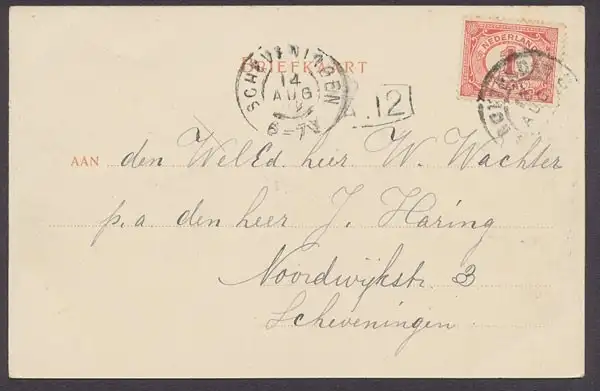 BRIEFKAART
SCHEVENINGEN
14
AUG
6-7V
12
NEDERLAND
1
AAN den WelEd. heer W. Wachter
p.a. den heer J. Haring
Noordwijkstr. 3
Scheveningen.